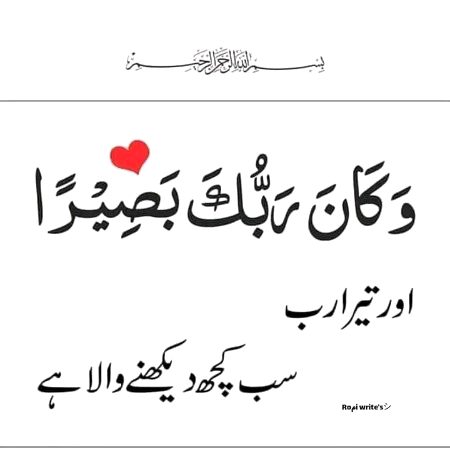 بسم الله الرحمن الرحيم
وَكَانَ رَبُّكَ بَصِيْرًا
اور تیرا رب
سب کچھ دیکھنے والا ہے
Romi write'sシ